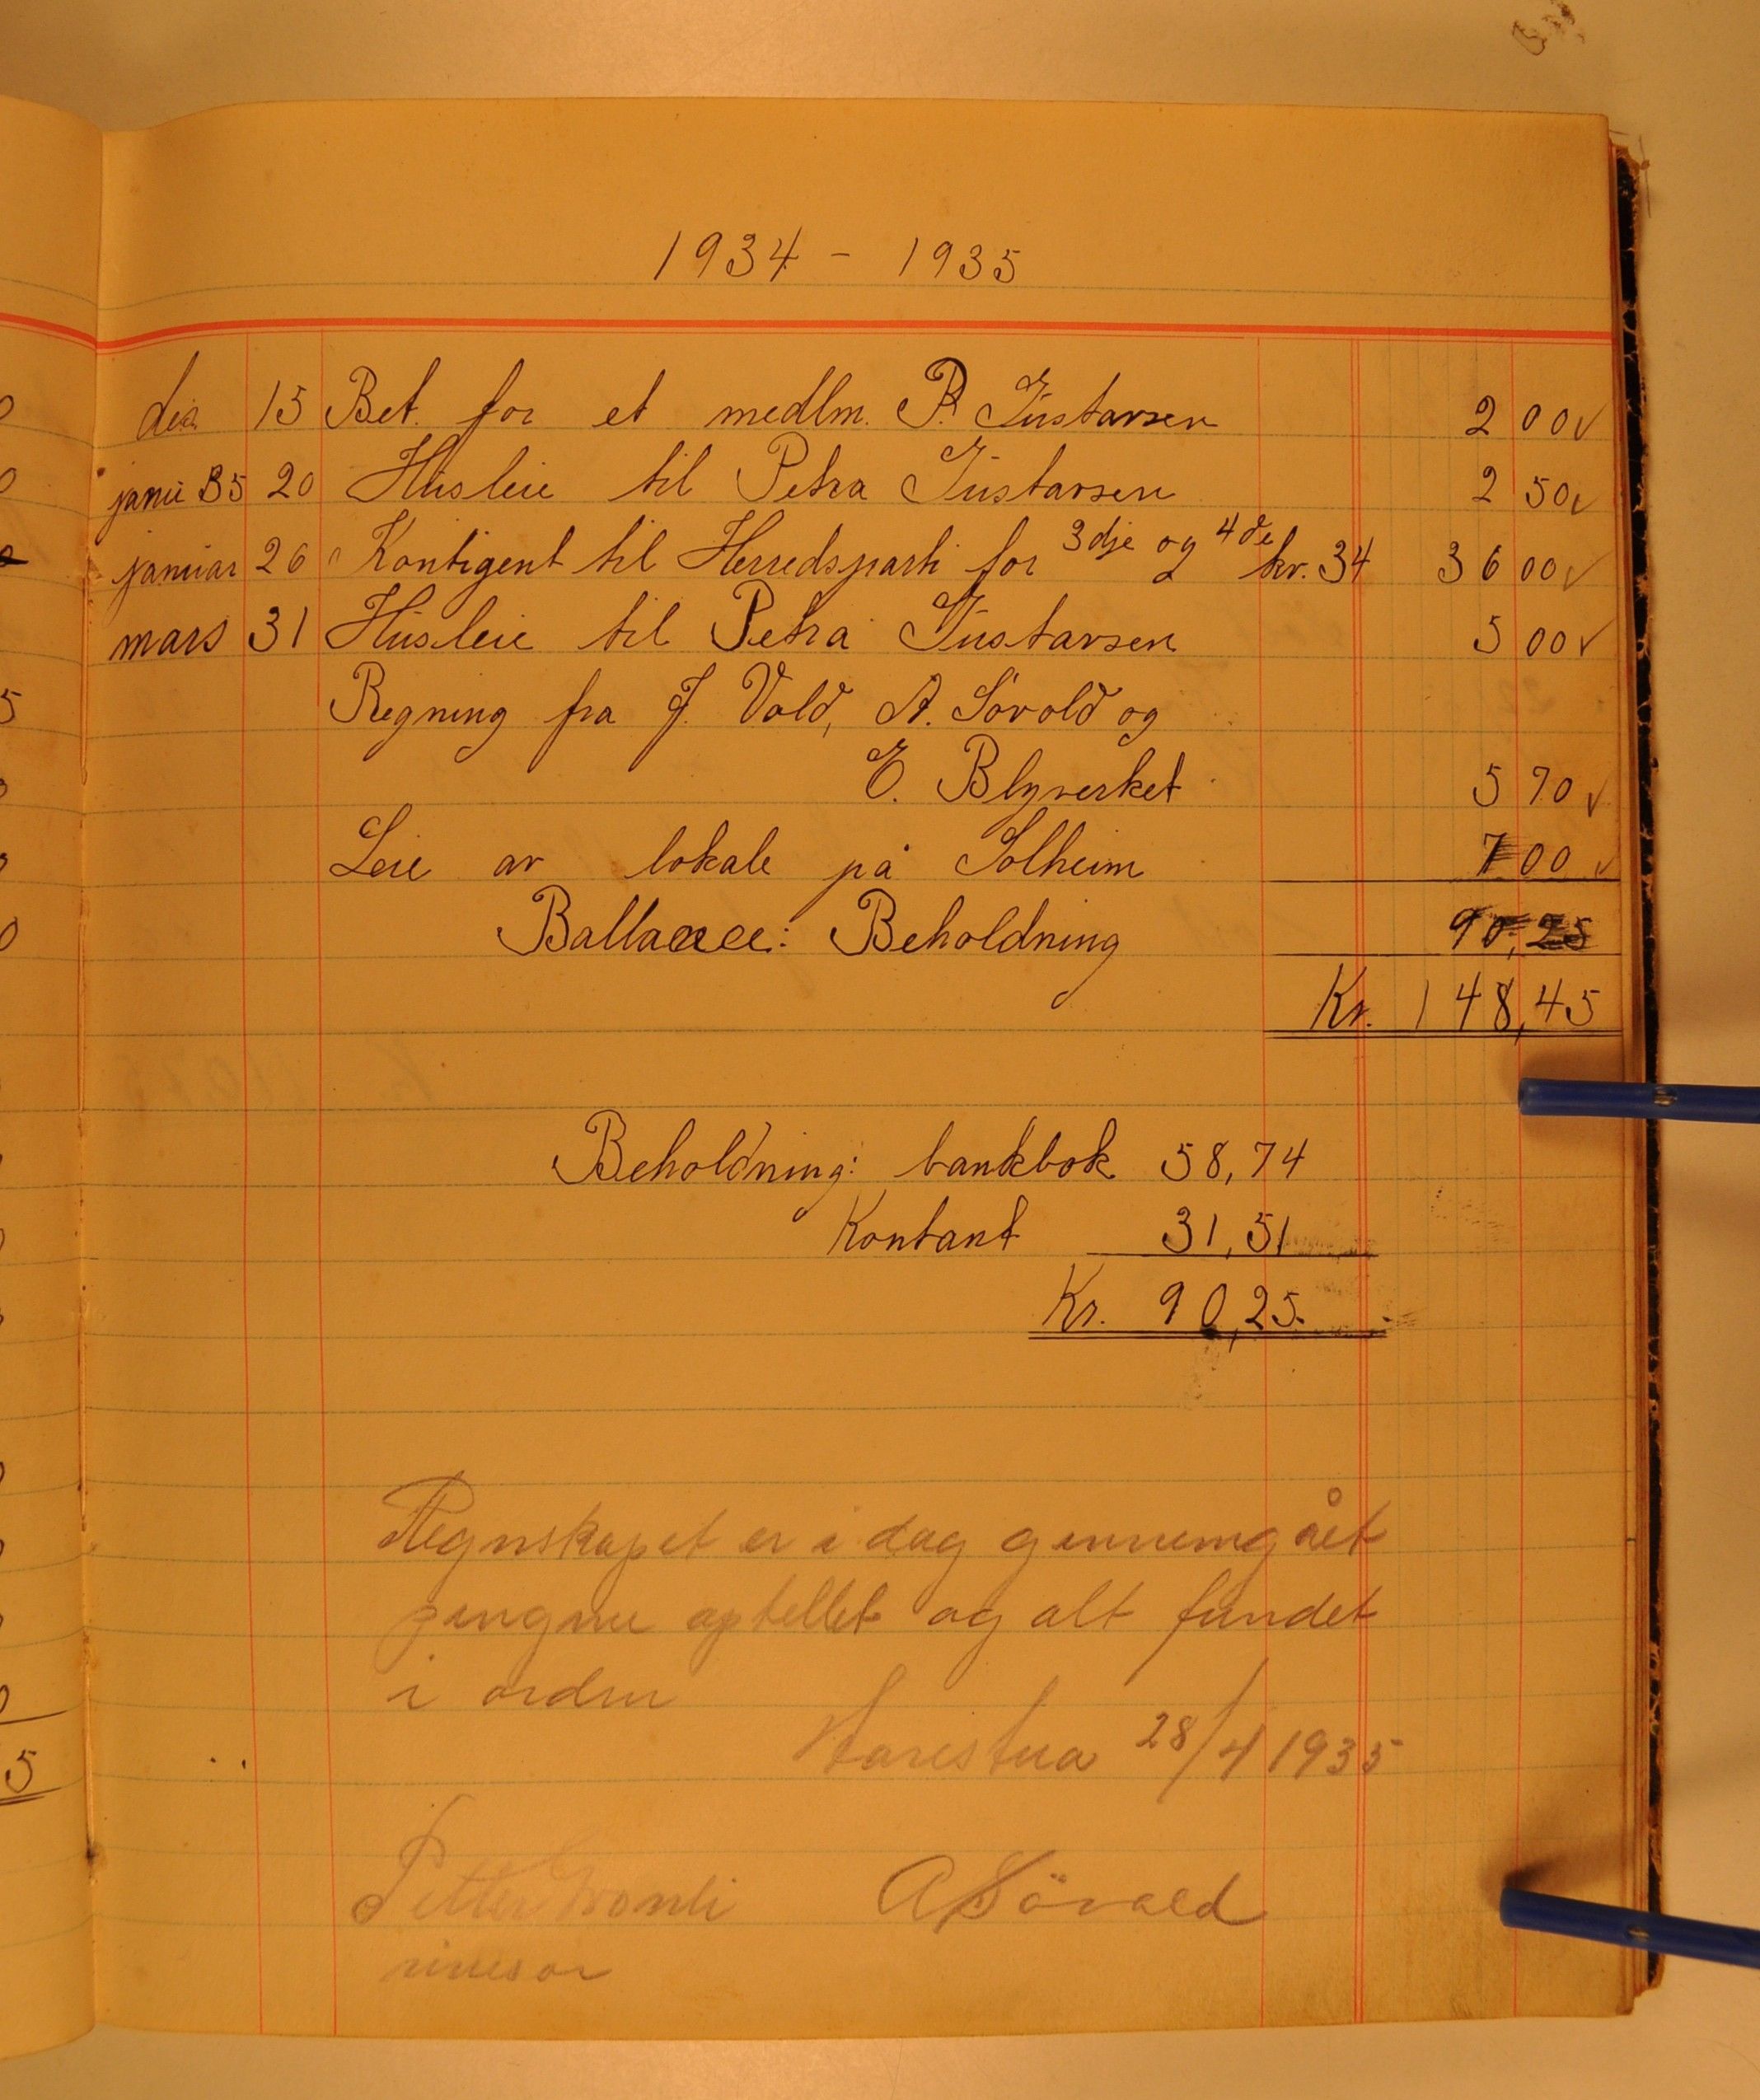 1934 - 1935
des. 15 Bet. for et medlm. P. Gustavsen 2 00 ✓
janu 35 20 Husleie til Petra Gustavsen 2 50 ✓
januar 26 Kontigent til Herredsparti for 3dje og 4de kv. 34 36 00 ✓
mars 31 Husleie til Petra Gustavsen 5 00 ✓
Regning fra J. Vold, A. Sövold og
E. Blyverket 5 70 ✓
Leie av lokale på Solheim 7 00 ✓
Ballance: Beholdning 90,25
Kr. 148,45
Beholdning: bankbok 58,74
Kontant 31,51
Kr. 90,25
Regnskapet er i dag gennemgået
pengene optellet og alt fundet
i orden
Harestua 28/4 1935
Petter A Sövold